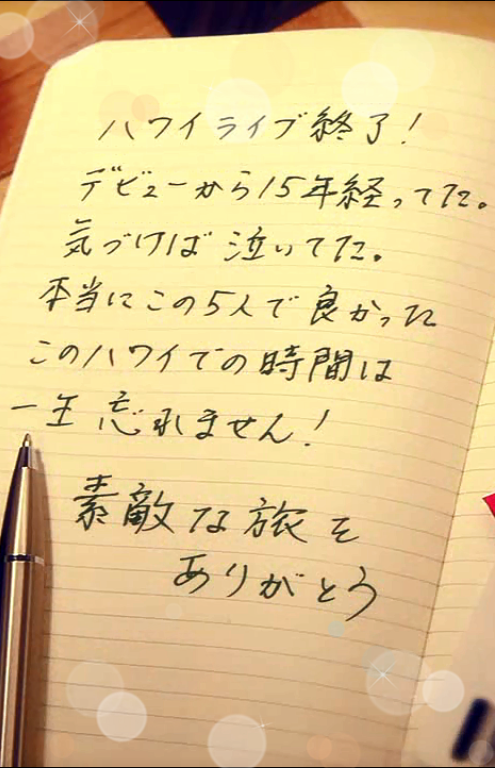 ハワイライブ終了!
デビューから15年経ってた。
気づけば泣いてた。
本当にこの5人で良かった
このハワイでの時間は
一生忘れません!
素敵な旅を
ありがとう